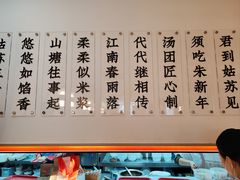 君到姑苏见
须吃朱新年
汤团匠心制
代代继相传
江南春雨落
柔柔似米浆
山塘往事起
悠悠如馅香